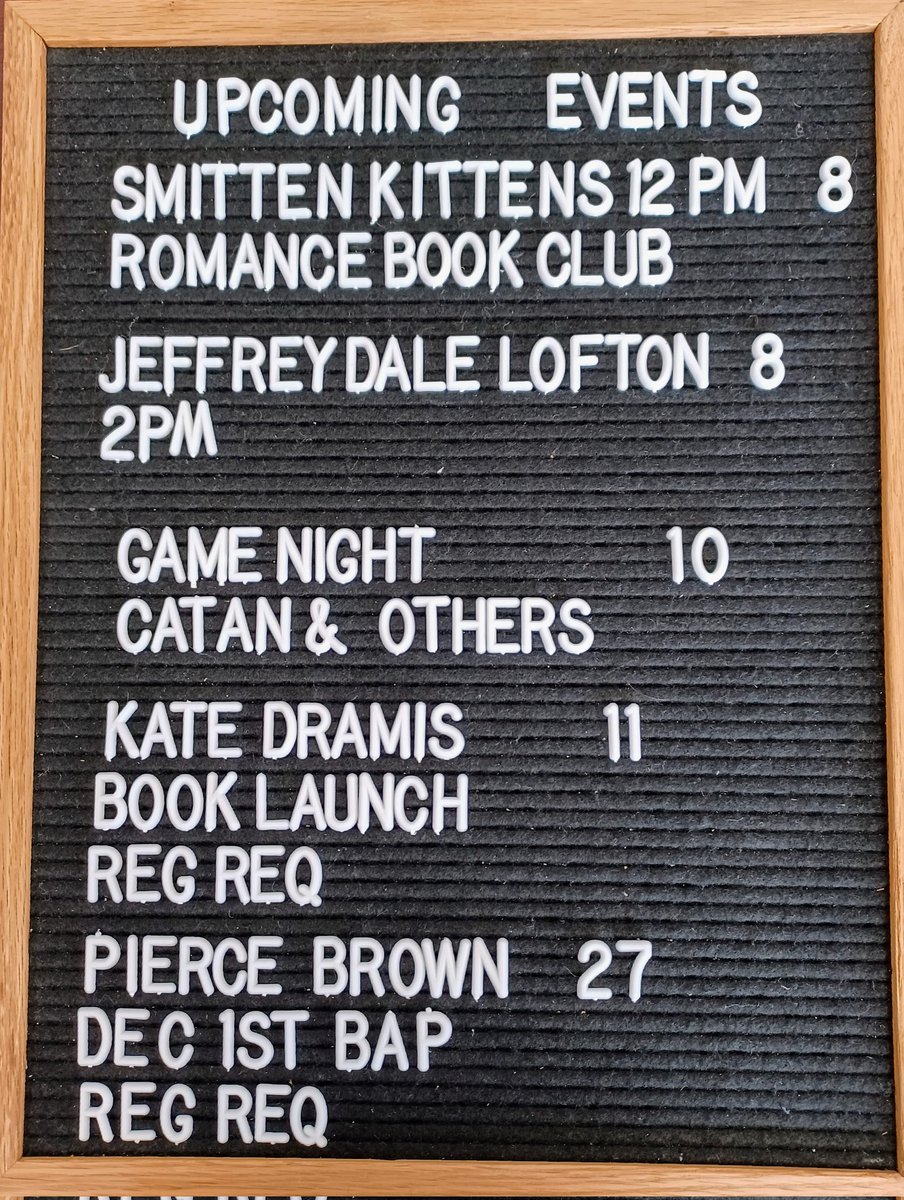 UPCOMING EVENTS
SMITTEN KITTENS 12 PM 8
ROMANCE BOOK CLUB
JEFFREY DALE LOFTON 8
2PM
GAME NIGHT 10
CATAN & OTHERS
KATE DRAMIS 11
BOOK LAUNCH
REG REQ
PIERCE BROWN 27
DEC 1ST BAP
REG REQ